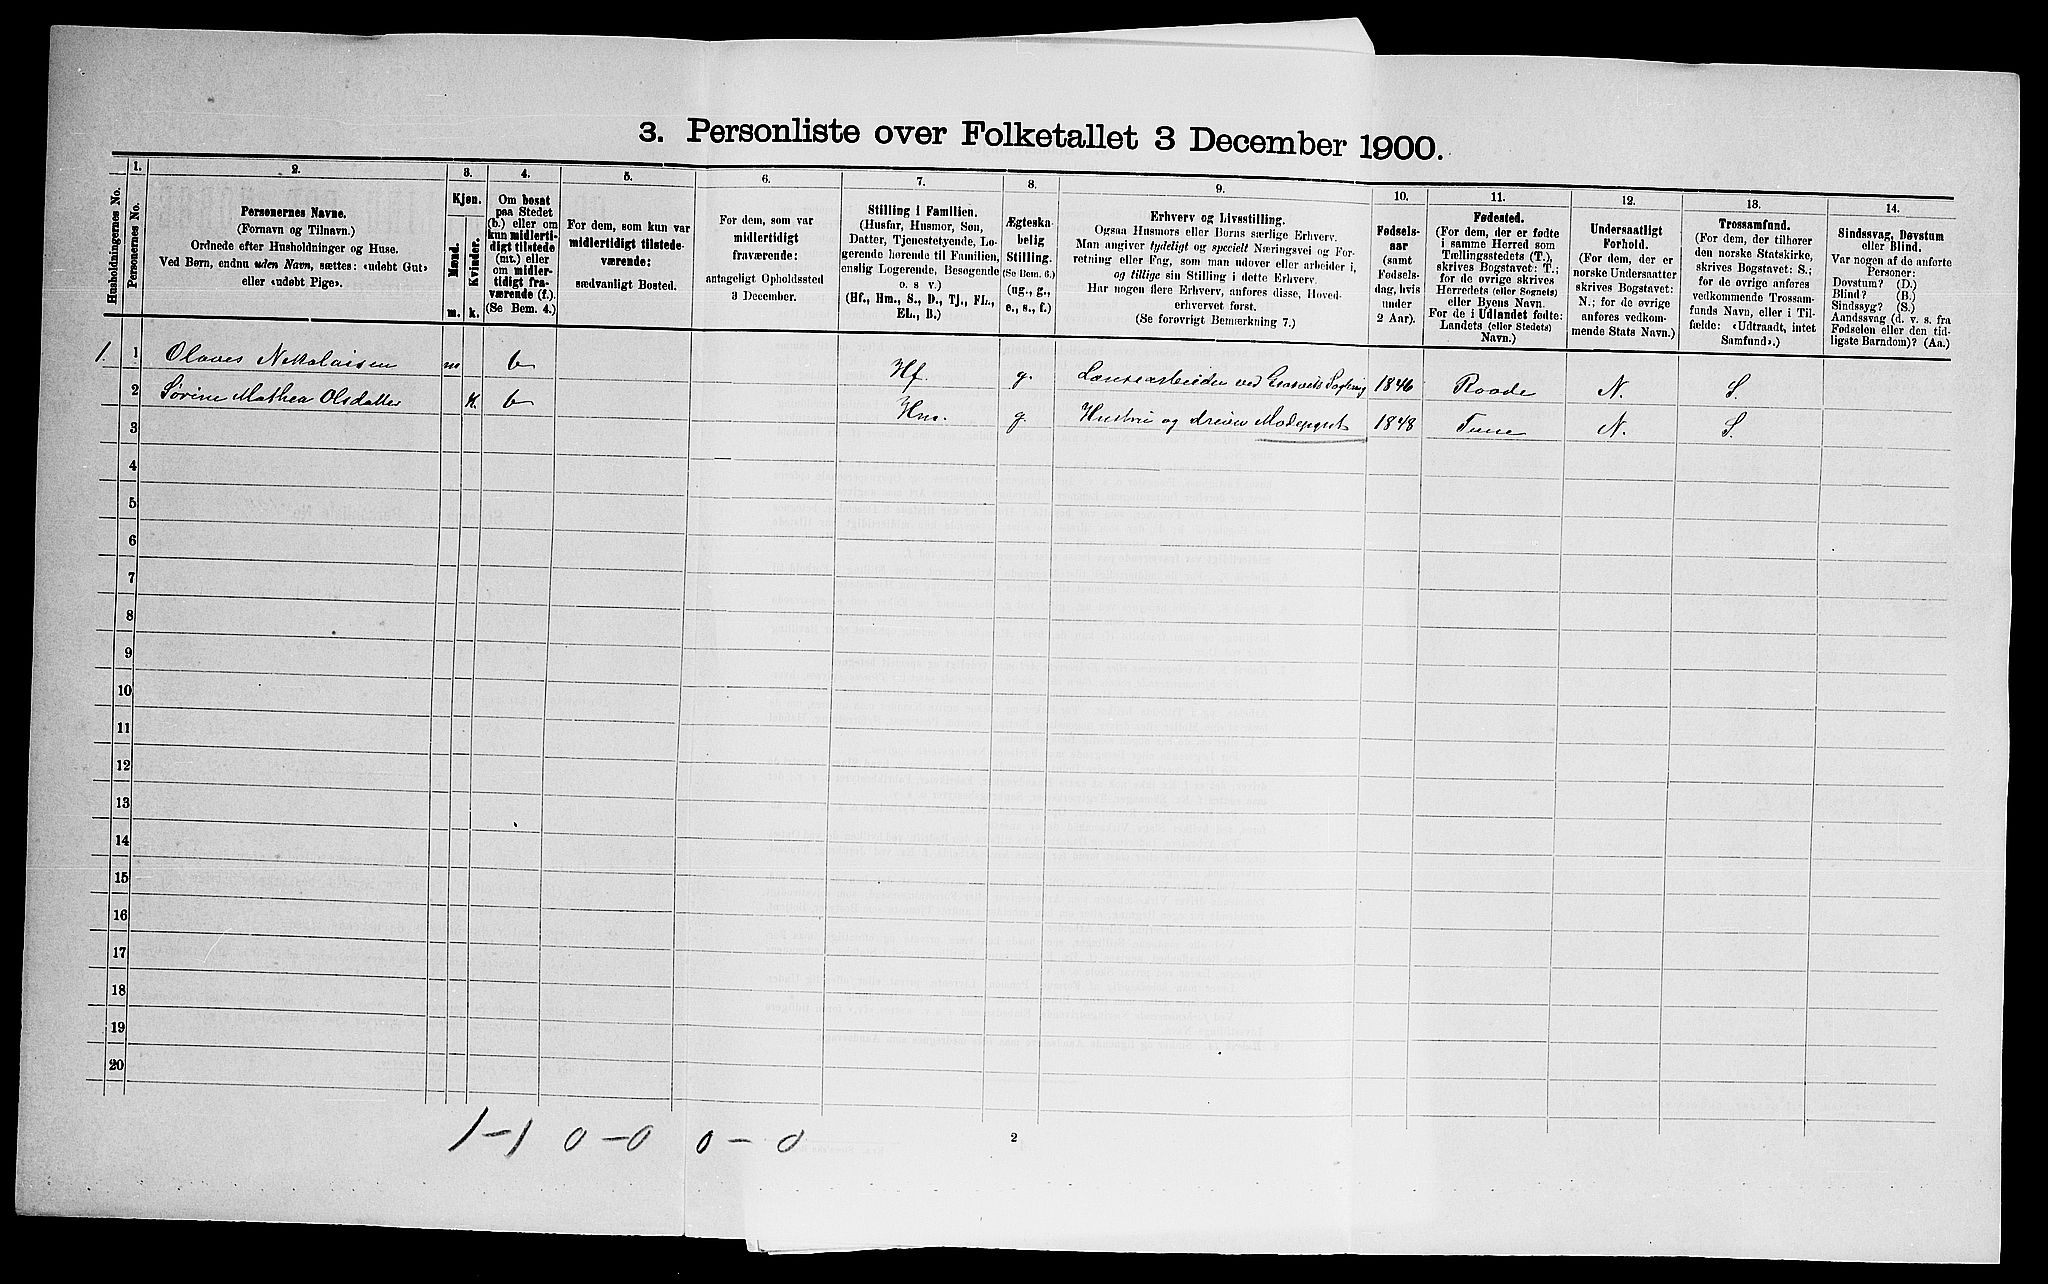 3. Personliste over Folketallet 3 December 1900.
Husholdningernes No.
1.
Personernes No.
2.
Personernes Navne.
(Fornavn og Tilnavn.)
Ordnede efter Husholdninger og Huse.
Ved Børn, endnu uden Navn, sættes: «udøbt Gut»
eller «udøbt Pige».
3.
Kjøn.
Mænd.
Kvinder.
m.
k.
4.
Om bosat
paa Stedet
(b.) eller om
kun midlerti-
digt tilstede
(mt.) eller
om midler-
tidigt fra-
værende (f.).
(Se Bem. 4.)
5.
For dem, som kun var
midlertidigt tilstede-
værende:
sædvanligt Bosted.
6.
For dem, som var
midlertidigt
fraværende:
antageligt Opholdssted
3 December.
7.
Stilling i Familien.
(Husfar, Husmor, Søn,
Datter, Tjenestetyende, Lo-
gerende hørende til Familien,
enslig Logerende, Besøgende
o. s v.)
(Hf., Hm., S., D., Tj., FL.,
EL., B.)
8.
Ægteska-
belig
Stilling.
(Se Bem. 6.)
(ug., g.,
e., s., f.)
9.
Erhverv og Livsstilling.
Ogsaa Husmors eller Børns særlige Erhverv.
Man angiver tydeligt og specielt Næringsvei og For-
retning eller Fag, som man udover eller arbeider i,
og tillige sin Stilling i dette Erhverv.
Har nogen flere Erhverv, anføres disse, Hoved-
erhvervet først.
(Se forøvrigt Bemærkning 7.)
10.
Fødsels-
aar
(samt
Fødsels-
dag, hvis
under
2 Aar).
11.
Fødested.
(For dem, der er fødte
i samme Herred som
Tællingsstedets (T.),
skrives Bogstavet: T.;
for de øvrige skrives
Herredets (eller Sognets)
eller Byens Navn.
For de i Udlandet fødte:
Landets (eller Stedets)
Navn.)
12.
Undersaatligt
Forhold.
(For dem, der er
norske Undersaatter
skrives Bogstavet:
N.; for de øvrige
anføres vedkom-
mende Stats Navn.)
13.
Trossamfund.
(For dem, der tilhører
den norske Statskirke,
skrives Bogstavet: S.;
for de øvrige anføres
vedkommende Trossam-
funds Navn, eller i Til-
fælde: «Udtraadt, intet
Samfund».)
14.
Sindssvag, Døvstum
eller Blind.
Var nogen af de anførte
Personer:
Døvstum? (D.)
Blind? (B.)
Sindssyg? (S.)
Aandssvag (d. v. s. fra
Fødselen eller den tid-
ligste Barndom)? (Aa.)
1. 1 Olaves Nikolaisen m b Hf. g. Lænsearbeider ved 1846 Raade N. S.
2 Sørine Mathea Olsdatter k. b Hm. g. Hustru og driver 1848 Tune N. S.
3
4
5
6
7
8
9
10
11
12
13
14
15
16
17
18
19
20
1-1 0-0 0-0
2